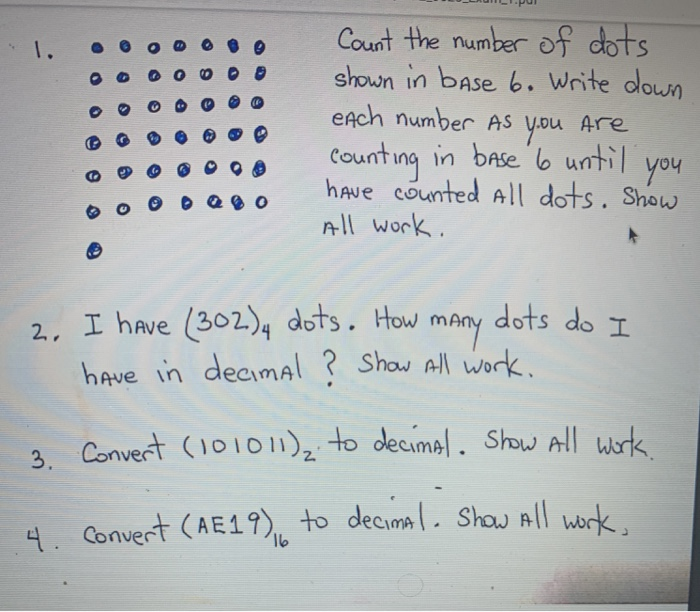 1. Count the number of dots
shown in base 6. Write down
each number as you are
counting in base 6 until you
have counted all dots. Show
all work.
2. I have (302)₄ dots. How many dots do I
have in decimal? Show all work.
3. Convert (101011)₂ to decimal. Show all work.
4. Convert (AE19)₁₆ to decimal. Show all work.